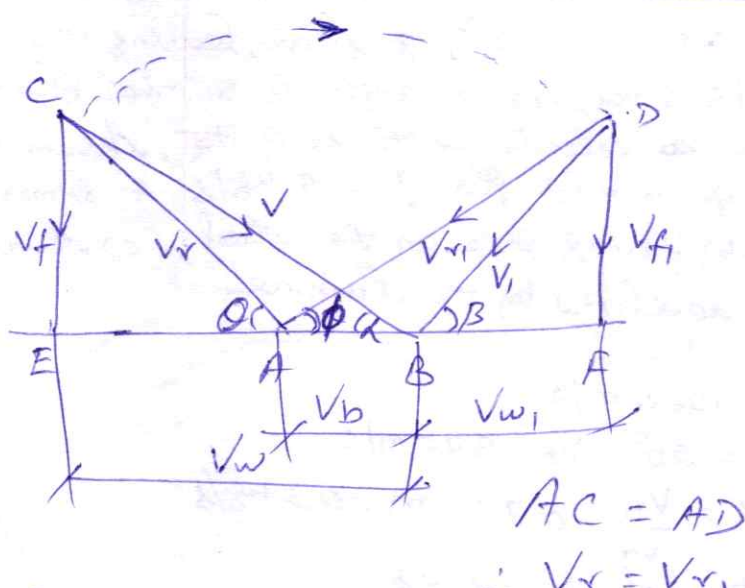 C
D
Vf
Vr
V
Vr1
V1
Vf1
θ
ϕ
α
β
E
A
B
F
Vb
Vw1
Vw
AC = AD
∴ Vr = Vr1